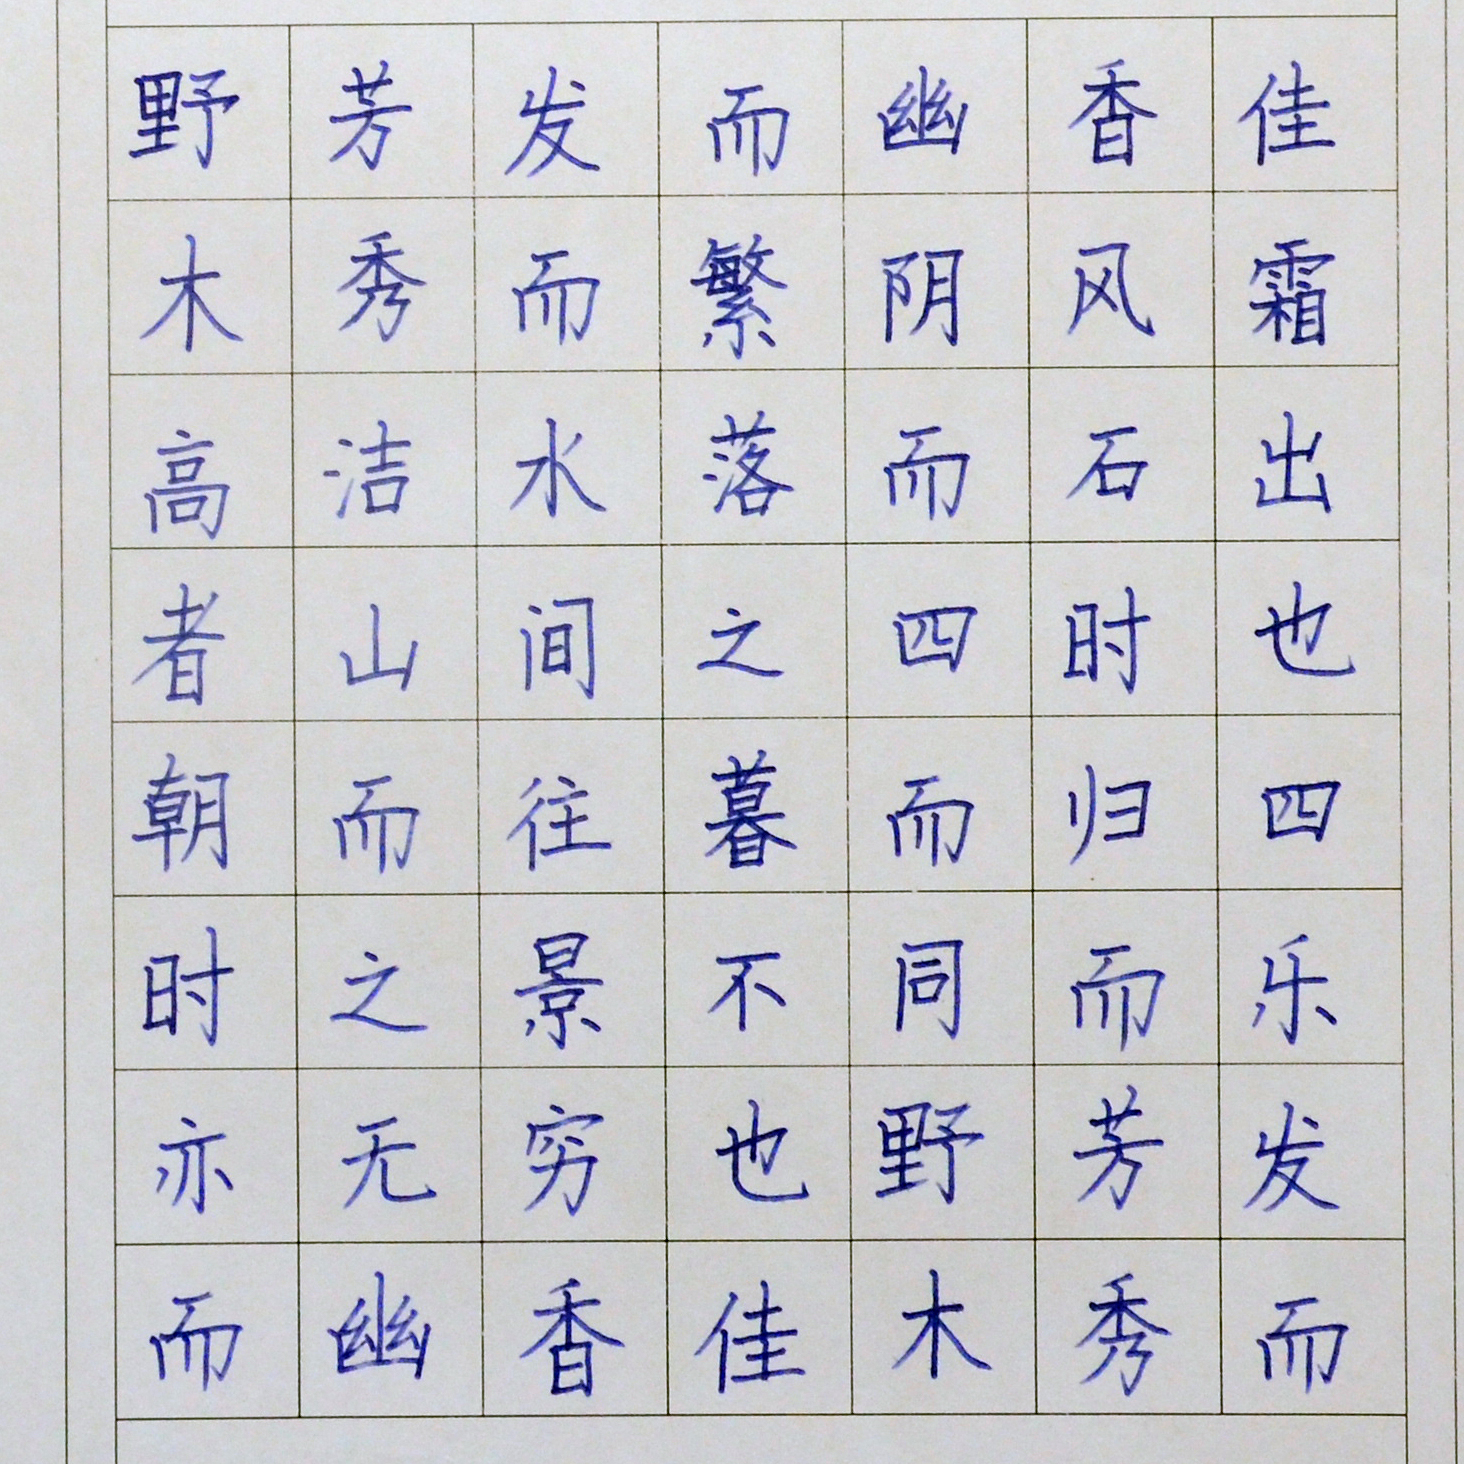 野芳发而幽香佳
木秀而繁阴风霜
高洁水落而石出
者山间之四时也
朝而往暮而归四
时之景不同而乐
亦无穷也野芳发
而幽香佳木秀而